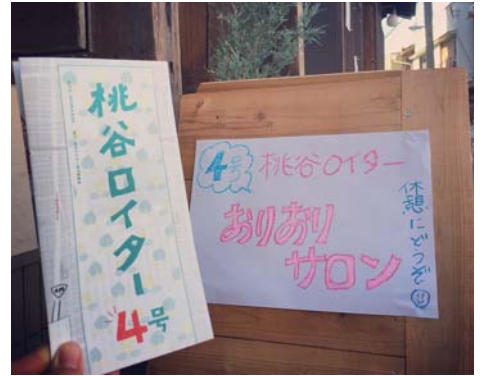 桃谷ロイター
4号
4号
桃谷ロイター
おりおり
サロン
休憩にどうぞ